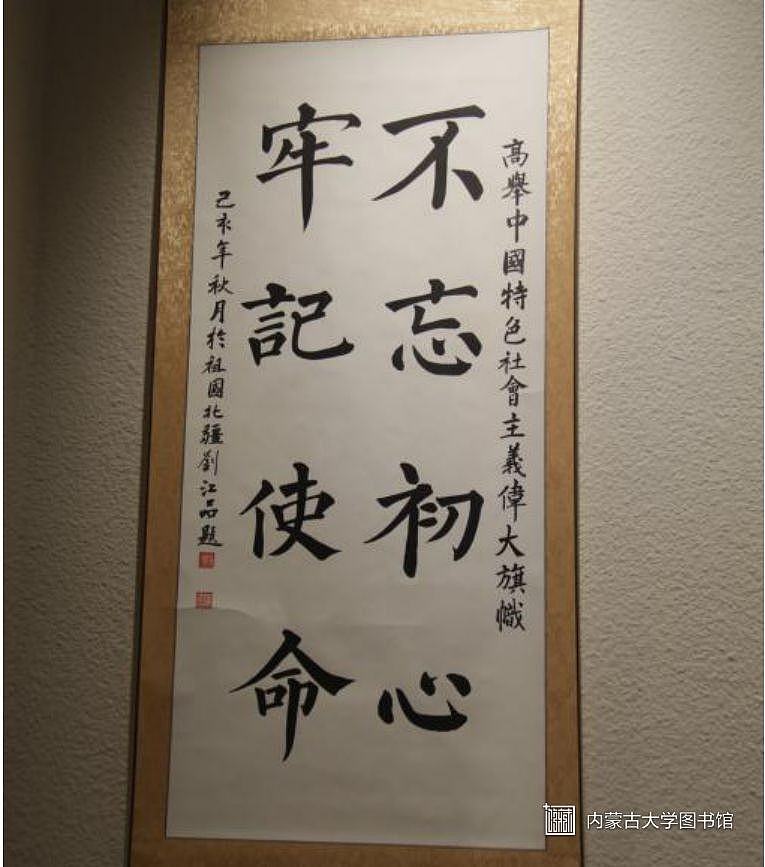 高舉中國特色社會主義偉大旗幟
不忘初心
牢記使命
己亥年秋月於祖國北疆劉江品題
内蒙古大学图书馆